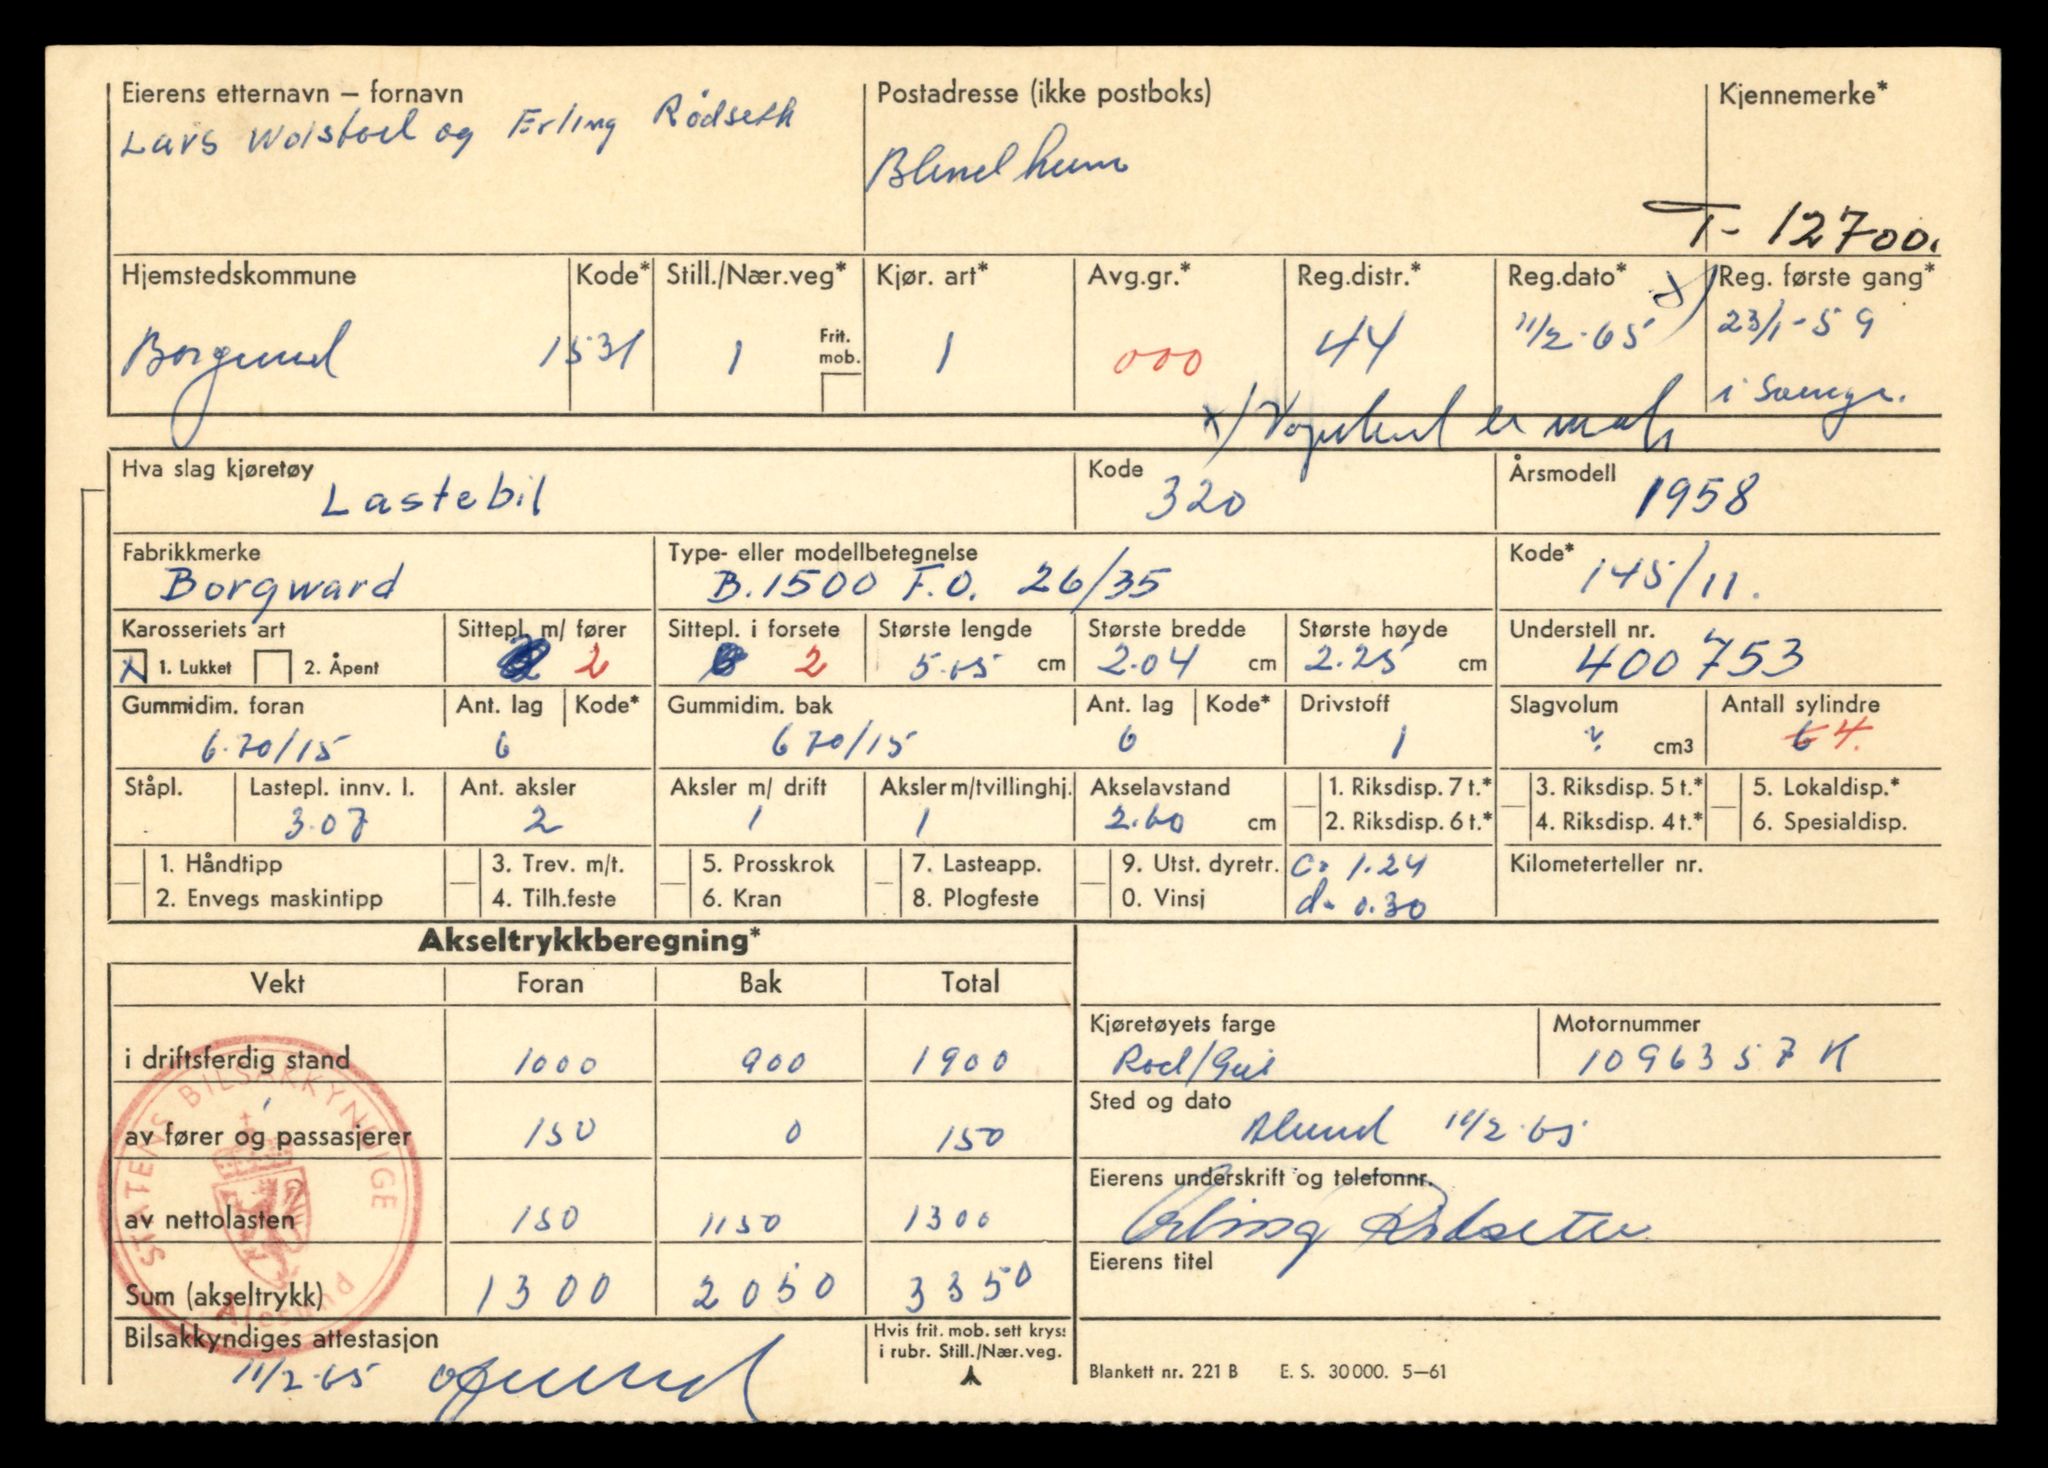 Eierens etternavn – fornavn Postadresse (ikke postboks) Kjennemerke*
Lars Wolstad og Erling Rødseth
Blindheim
T- 12700.
Hjemstedskommune Kode* Still./Nær.veg* Kjør. art* Avg.gr.* Reg.distr.* Reg.dato* x) Reg. første gang*
Borgund 1531 1 Frit. mob. 1 000 44 11/2-65 23/1-59
i Sverige.
x) Vognkort er
Hva slag kjøretøy Kode Årsmodell
Lastebil 320 1958
Fabrikkmerke Type- eller modellbetegnelse Kode*
Borgward B.1500 F.O. 26/35 145/11.
Karosseriets art Sittepl. m/ fører Sittepl. i forsete Største lengde Største bredde Største høyde Understell nr.
X 1. Lukket 2. Åpent 2 2 5.05 cm 2.04 cm 2.25 cm 400753
Gummidim. foran Ant. lag Kode* Gummidim. bak Ant. lag Kode* Drivstoff Slagvolum Antall sylindre
6.70/15 6 670/15 6 1 ? cm3 6 4.
Ståpl. Lastepl. innv. l. Ant. aksler Aksler m/ drift Aksler m/tvillinghj. Akselavstand 1. Riksdisp. 7 t.* 3. Riksdisp. 5 t.* 5. Lokaldisp.*
3.07 2 1 1 2.60 cm 2. Riksdisp. 6 t.* 4. Riksdisp. 4 t.* 6. Spesialdisp.
1. Håndtipp 3. Trev. m/t. 5. Prosskrok 7. Lasteapp. 9. Utst. dyretr. c= 1.24 Kilometerteller nr.
2. Envegs maskintipp 4. Tilh.feste 6. Kran 8. Plogfeste 0. Vinsj d= 0.30
Akseltrykkberegning*
Vekt Foran Bak Total
Kjøretøyets farge Motornummer
i driftsferdig stand 1000 900 1900 Rød/Gul 1096357 K
Sted og dato
av fører og passasjerer 150 0 150 Ålesund 11/2-65
Eierens underskrift og telefonnr.
av nettolasten 150 1150 1300 Erling Rødseth
Eierens titel
Sum (akseltrykk) 1300 2050 3350
STATENS BILSAKKYNDIGE
Ålesund
Bilsakkyndiges attestasjon Hvis frit. mob. sett kryss
i rubr. Still./Nær.veg.
11/2-65
Blankett nr. 221 B E. S. 30000. 5–61